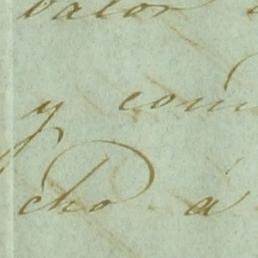 valor
y com
cho á